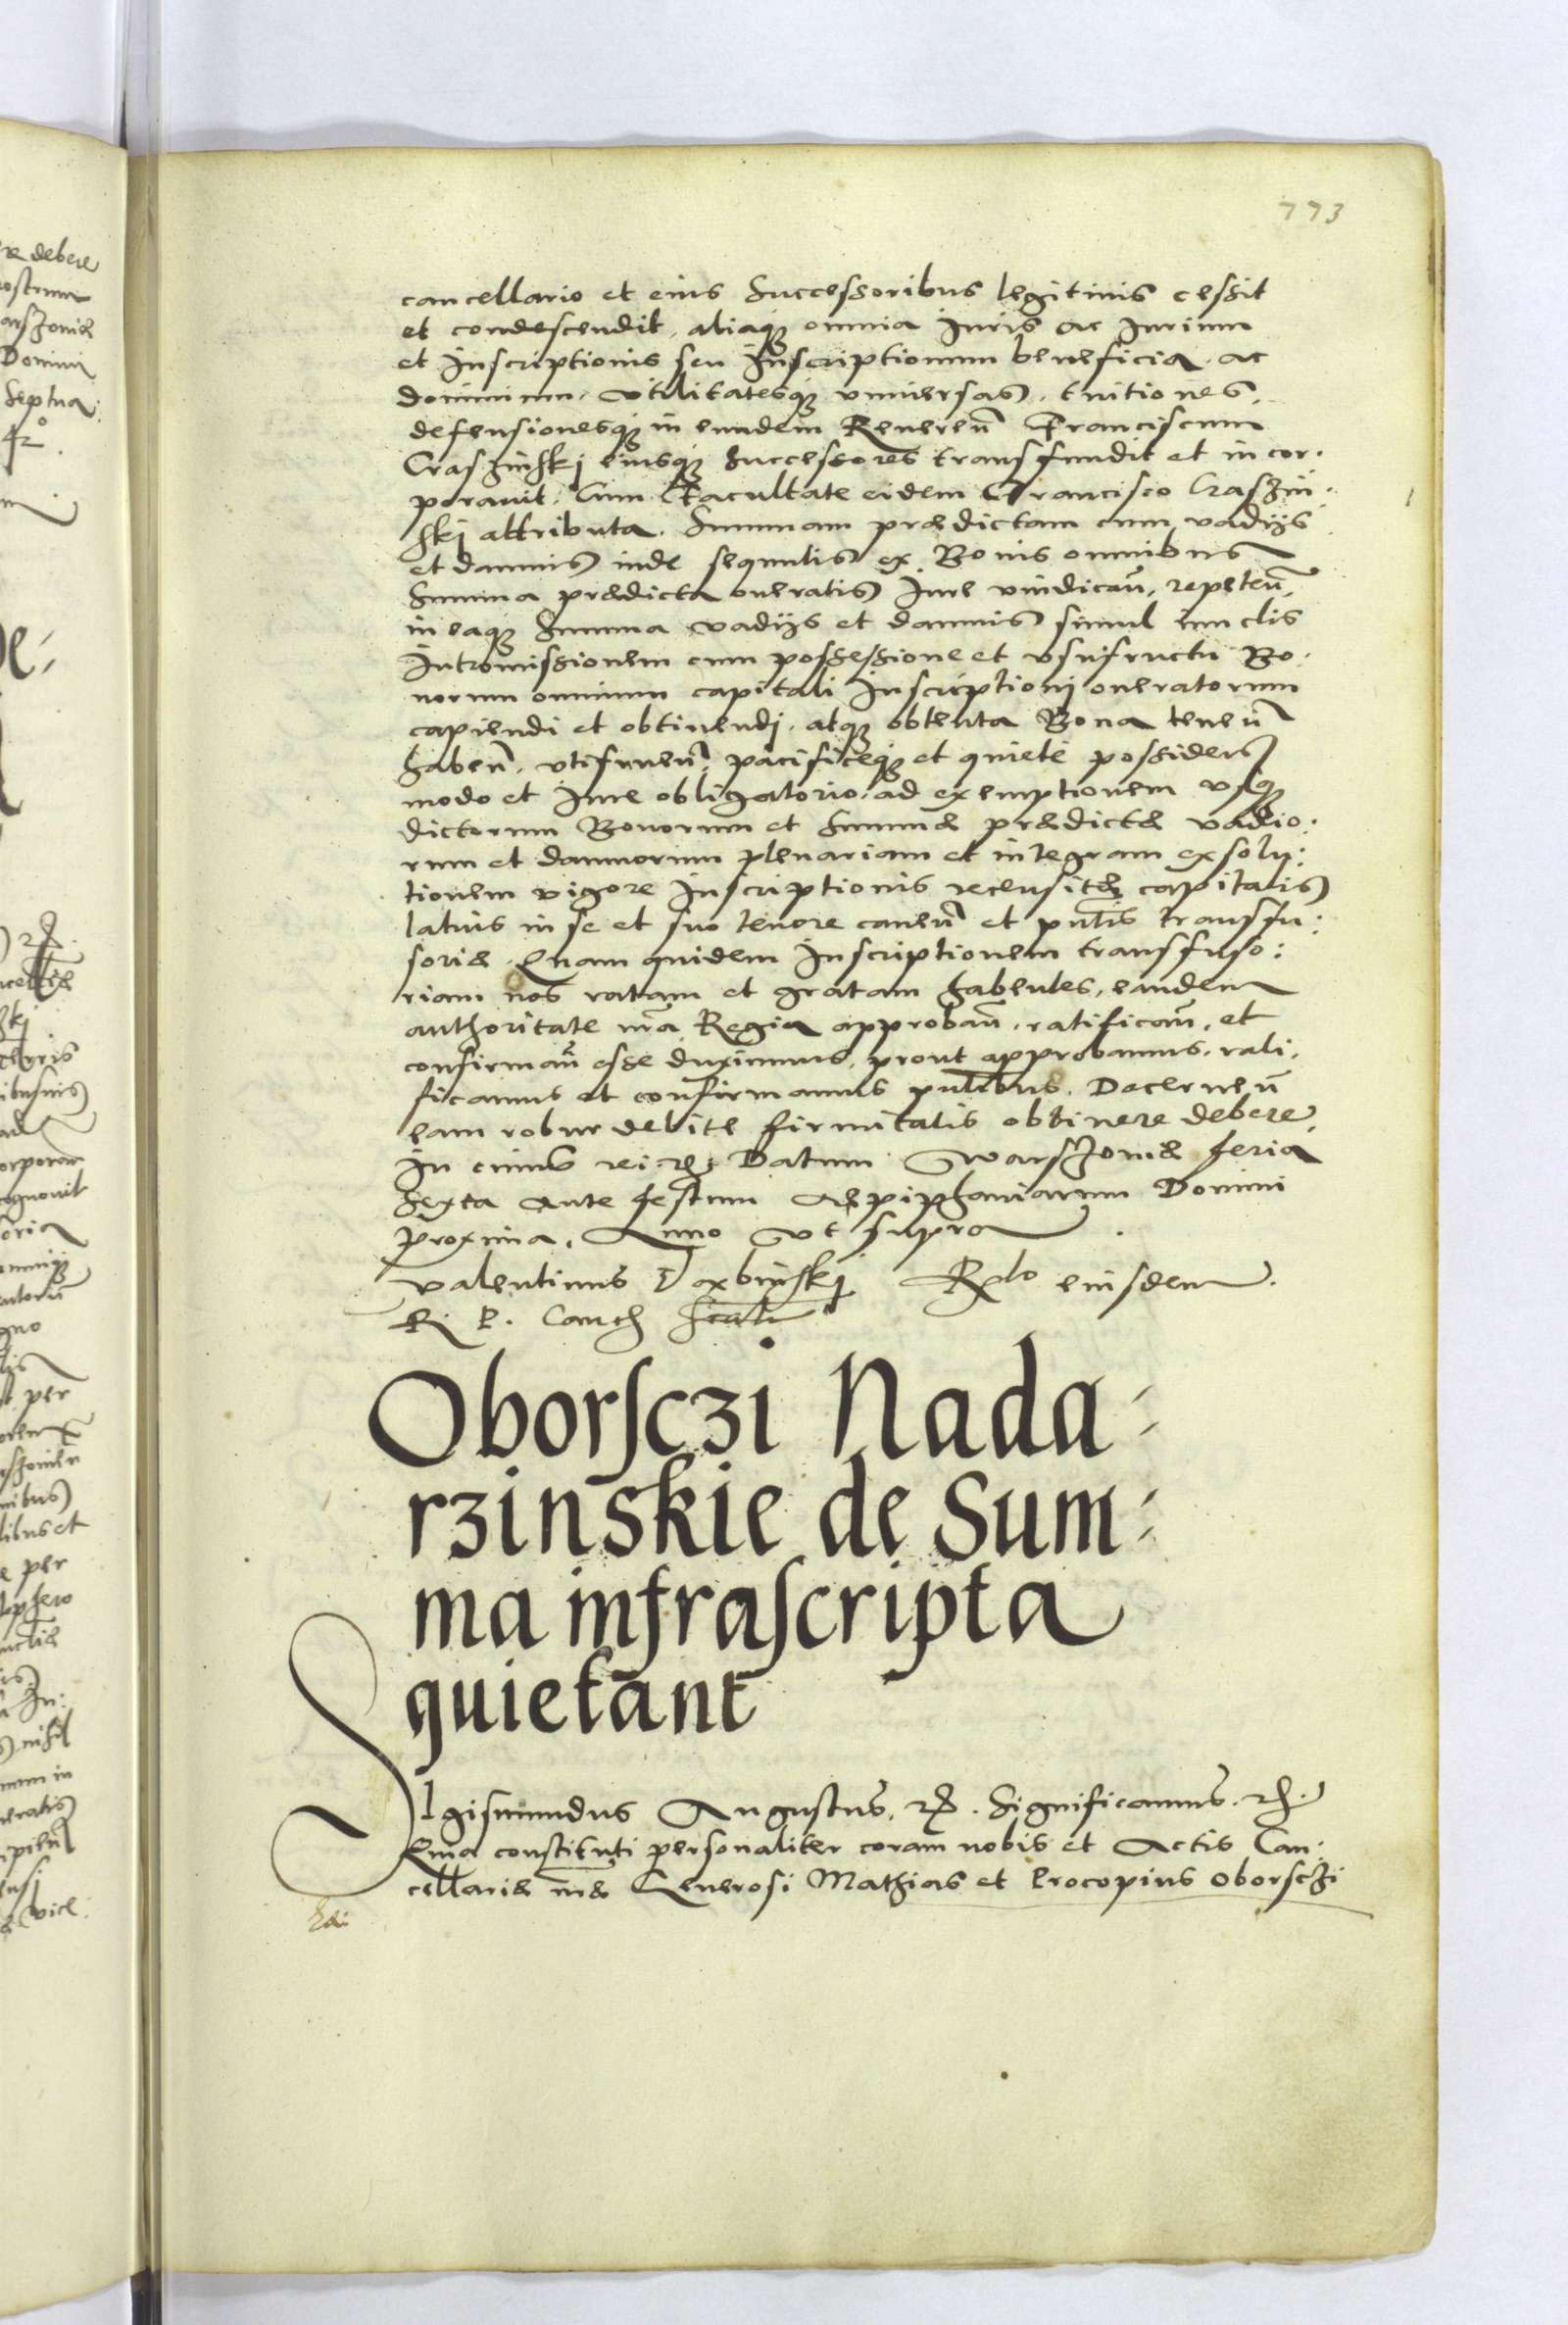 773
cancellario et eius Successoribus legitimis cessit
et condescendit, aliaq3 omnia Juris ac Jurium
et Inscriptionis seu Inscriptionum beneficia ac
dominium, vtilitatesq3 vniuersas, tuitiones,
defensionesq3 in eundem Reuereñ Franciscum
Craszinskj eiusq3 Successores transfundit et incor:
porauit. Cum facultate eidem Francisco Craszin:
skj attributa. Summam prædictam cum vadijs
et damnis inde sequutis ex Bonis omnibus
Summa prædicta oneratis Jure vindicañ, repeteñ,
in eaq3 Summa vadijs et damnis simul iunctis
Intromissionem cum possessione et vsufructu Bo:
norum omnium capitali Inscriptionj oneratorum
capiendi et obtinendj, atq3 obtenta Bona teneñ
habeñ, vtifrueñ, pacificeq3 et quietè possideñ
modo et Jure obligatorio, ad exemptionem vsq3
dictorum Bonorum et Summæ prædictæ vadio:
rum et damnorum plenariam et integram exsolu:
tionem vigore Inscriptionis recensitæ capitalis
latius in se et suo tenore caneñ et pñtis transfu:
soriæ. Quam quidem Inscriptionem transfuso:
riam nos ratam et gratam habentes, eandem
authoritate ñra Regia approbañ, ratificañ, et
confirmañ esse duximus, prout approbamus, rati:
ficamus et confirmamus pñtibus. Decerneñ
eam robur debite firmitatis obtinere debere,
In cuius rei &c Datum Warszouiæ feria
Sexta ante festum Aepiphaniarum Domini
proxima, Anno vt supra.
Valentinus Dœbinskj Rlo eiusdem.
R. P. Canc
Oborsczi Nada=
rzinskie de Sum=
ma infrascripta
quietant
Sigismundus Augustus, &c. Significamus. &c.
Quia constituti personaliter coram nobis et Actis Can:
cellariæ ñræ Generosi Mathias et Procopius Oborsczi